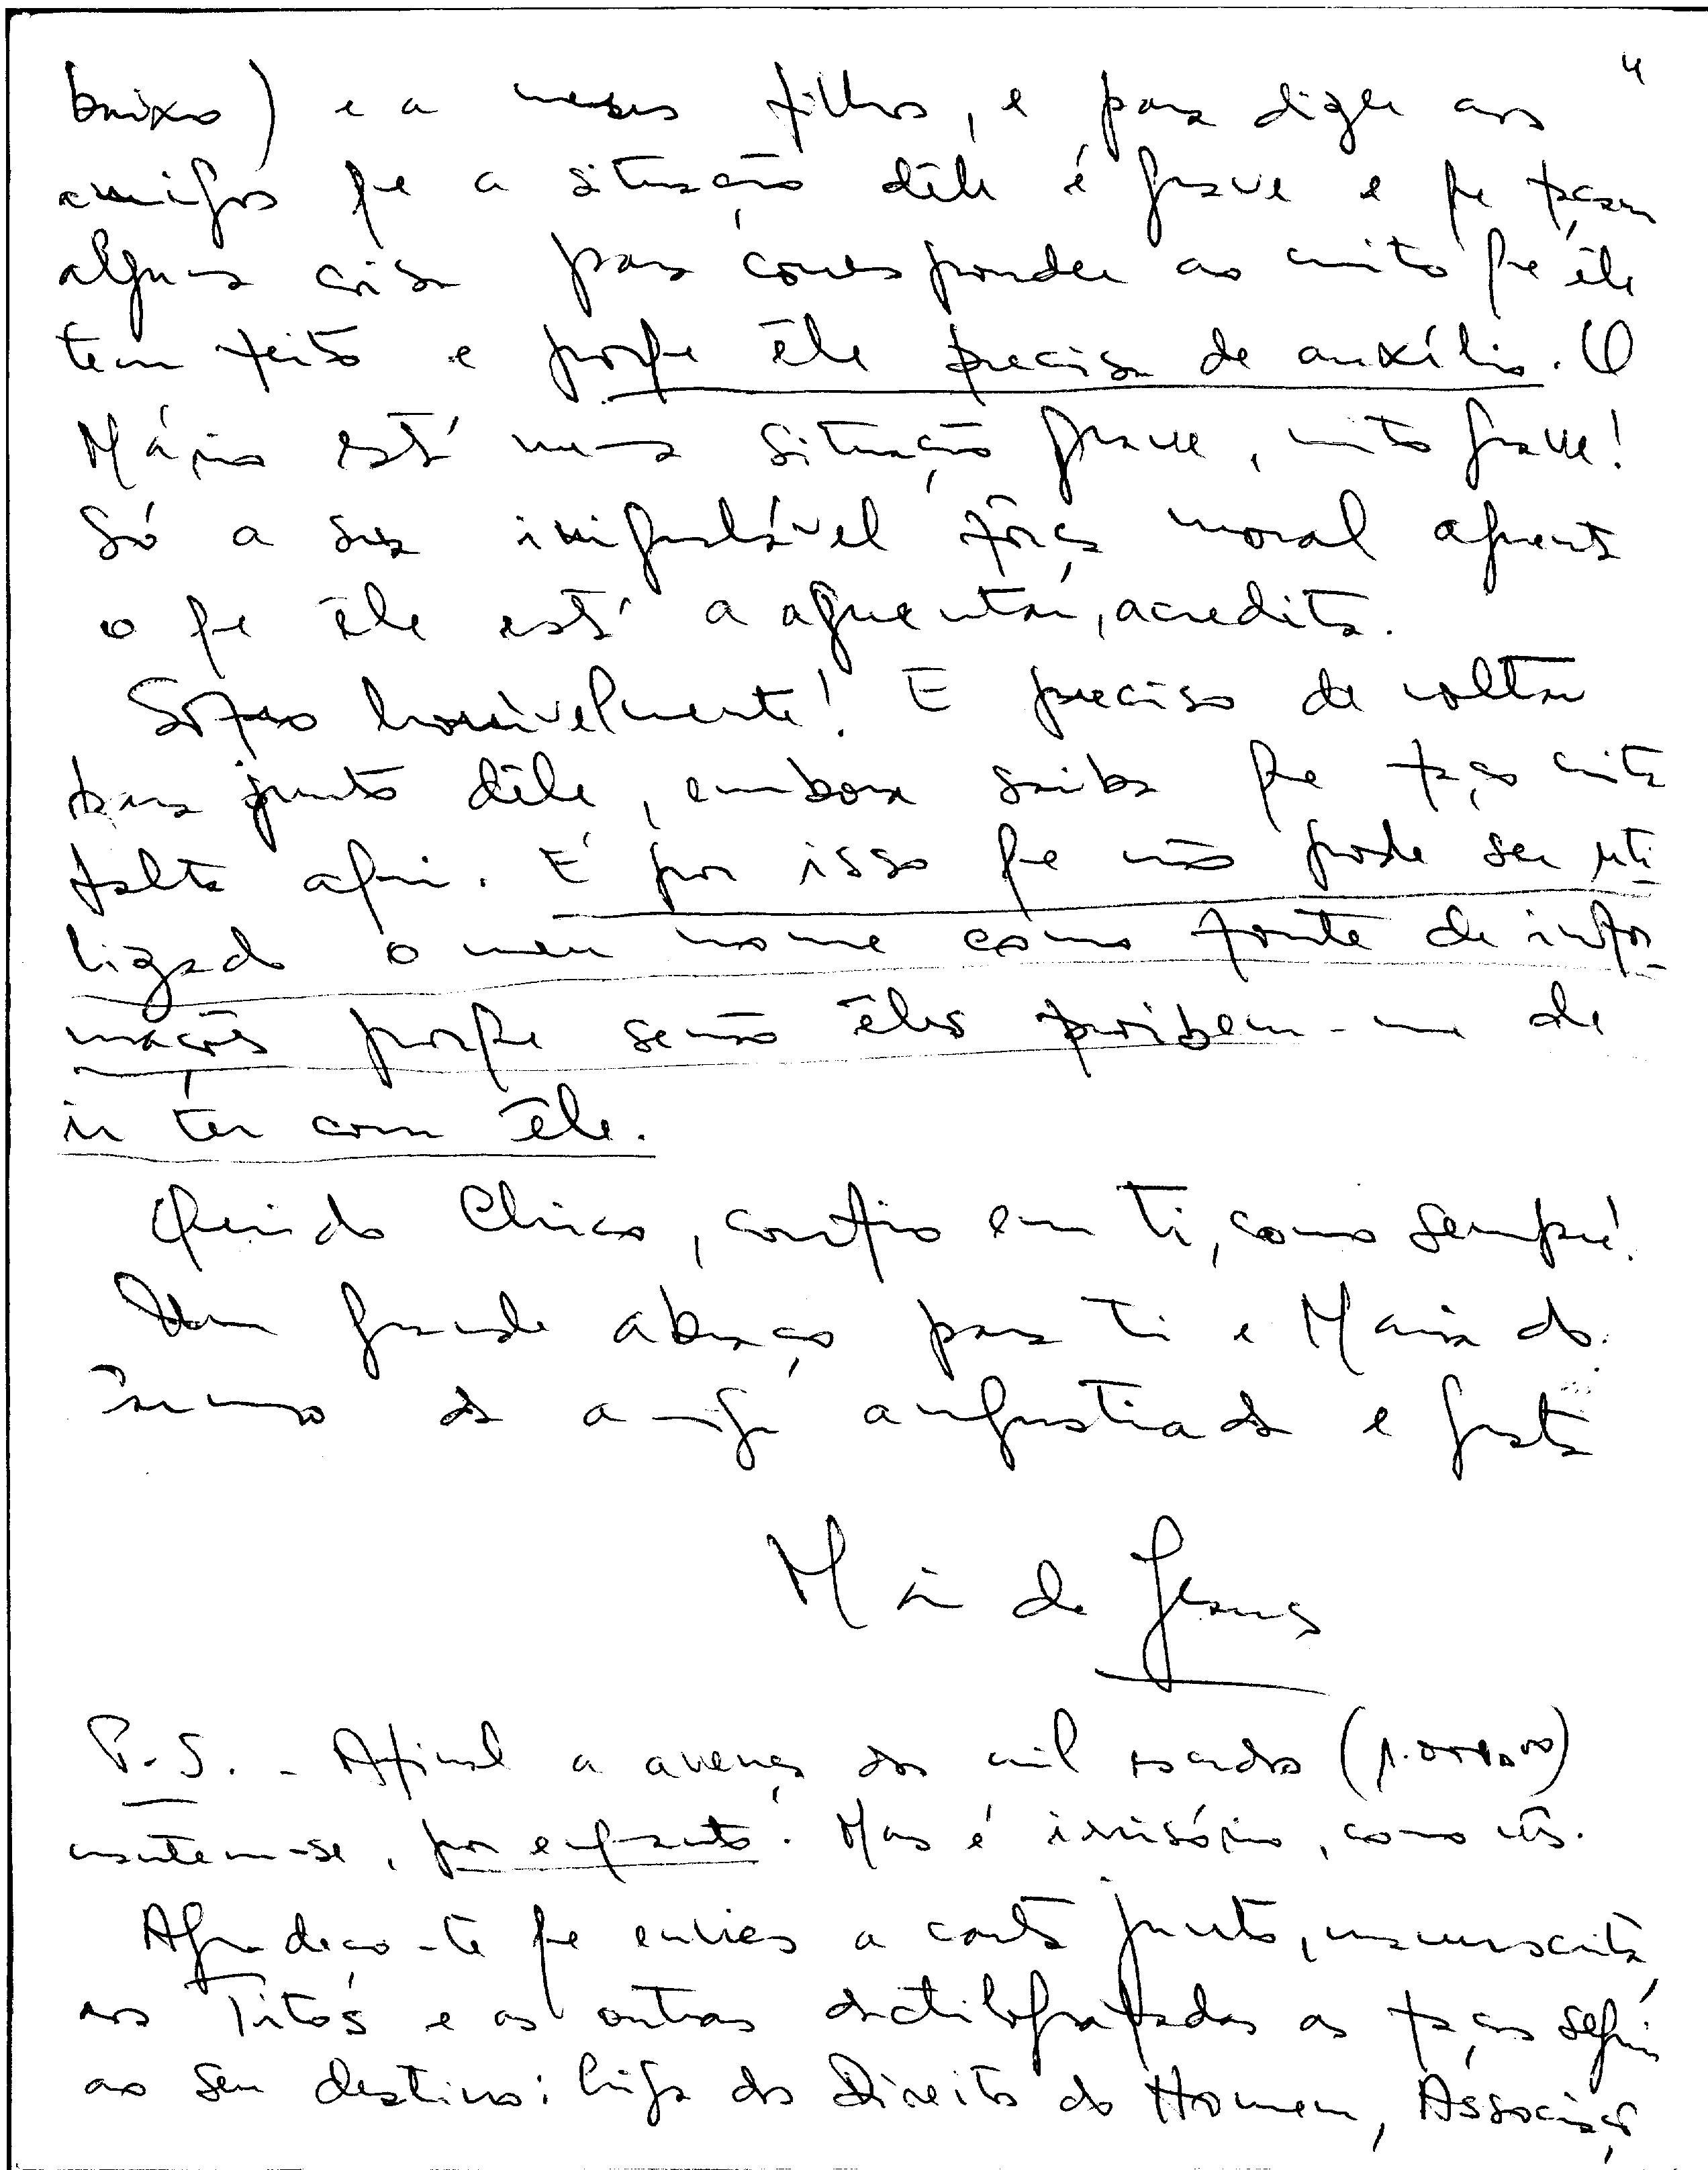 4
baixo) e a meus filhos, e para dizer aos
amigos que a situação dêle é grave e que façam
alguma coisa para corresponder ao muito que êle
tem feito e porque êle precisa de auxílio. O
Mário está numa situação grave, muito grave!
Só a sua inigualável fôrça moral aguenta
o que êle está a aguentar, acredita.
Sofro horrivelmente! E preciso de voltar
para junto dêle, embora saiba que faço muita
falta aqui. É por isso que não pode ser uti
lizado o meu nome como fonte de infor-
mações porque senão êles proibem-me de
ir ter com êle.
Querido Chico, confio em ti, como sempre!
Um grande abraço para ti e Maria do
da amiga angustiada e grata
Mª de Jesus
P.S. - Afinal a avença dos mil escudos (1.000$00)
mantem-se, por enquanto. Mas é irrisório, como vês.
Agradeço-te que envies a carta junta, manuscrita,
aos Titos e as outras dactilografadas as faças seguir
ao seu destino: Liga dos Direitos do Homem, Associaçã